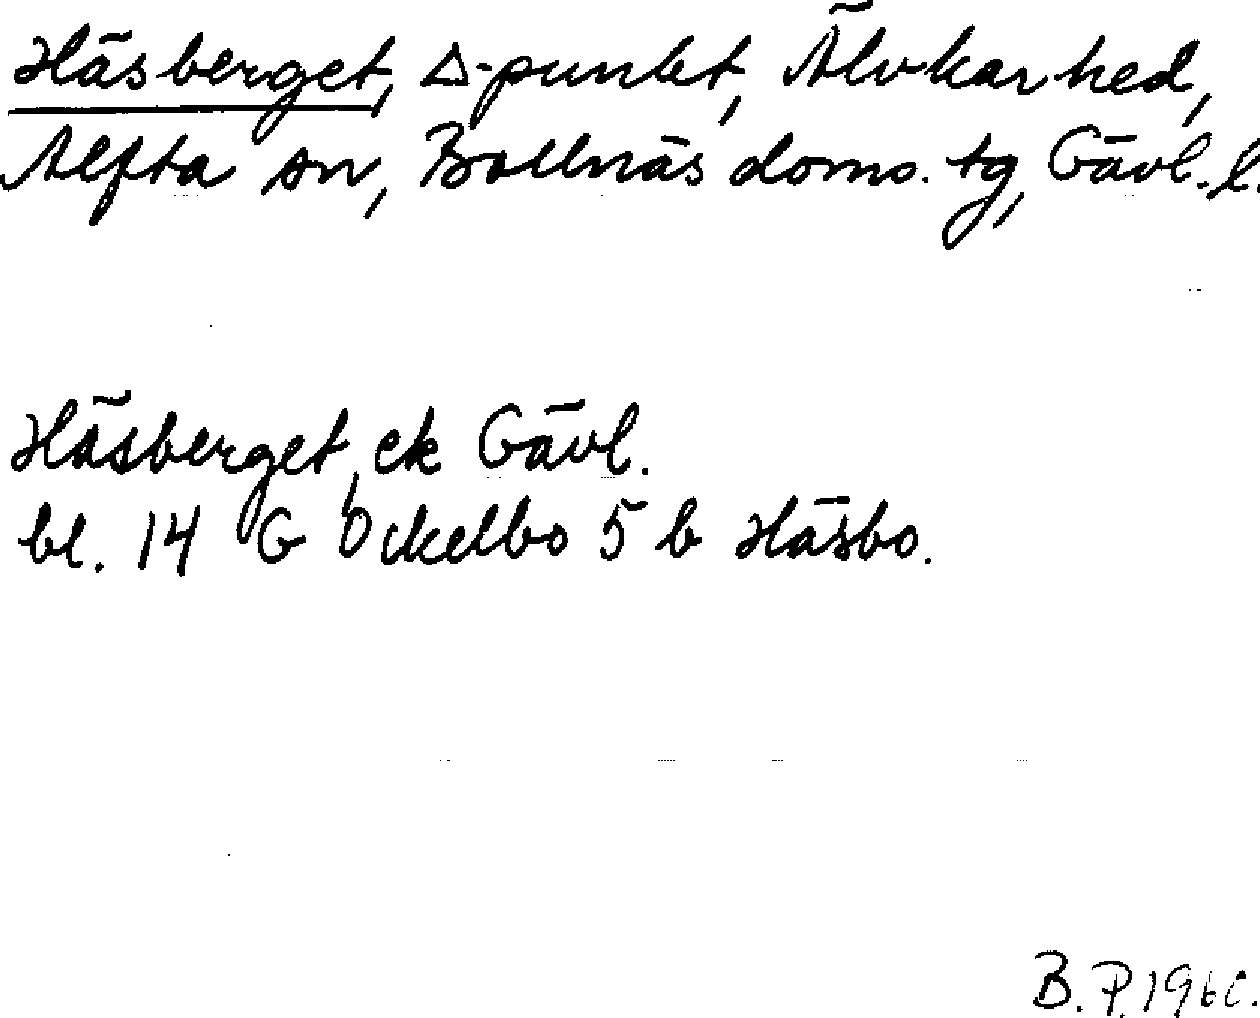 Häsberget, △-punkt, Älvkarhed,
Alfta sn, Bollnäs doms. tg, Gävl. l.
Häsberget, ek Gävl.
bl. 14 G Ockelbo 5 b Häsbo.
B. P. 1960.